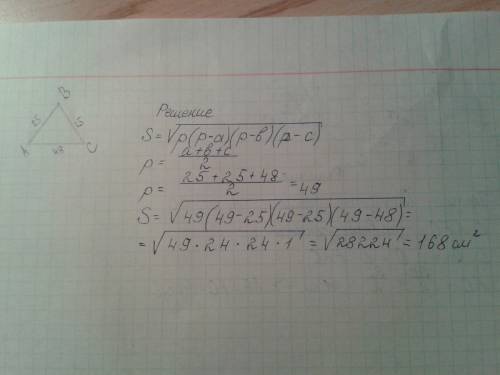 B
25 25
A 48 C
Решение
S=√p(p-a)(p-b)(p-c)
p= a+b+c / 2
p= 25+25+48 / 2 =49
S=√49(49-25)(49-25)(49-48)=
=√49·24·24·1=√28224=168см²